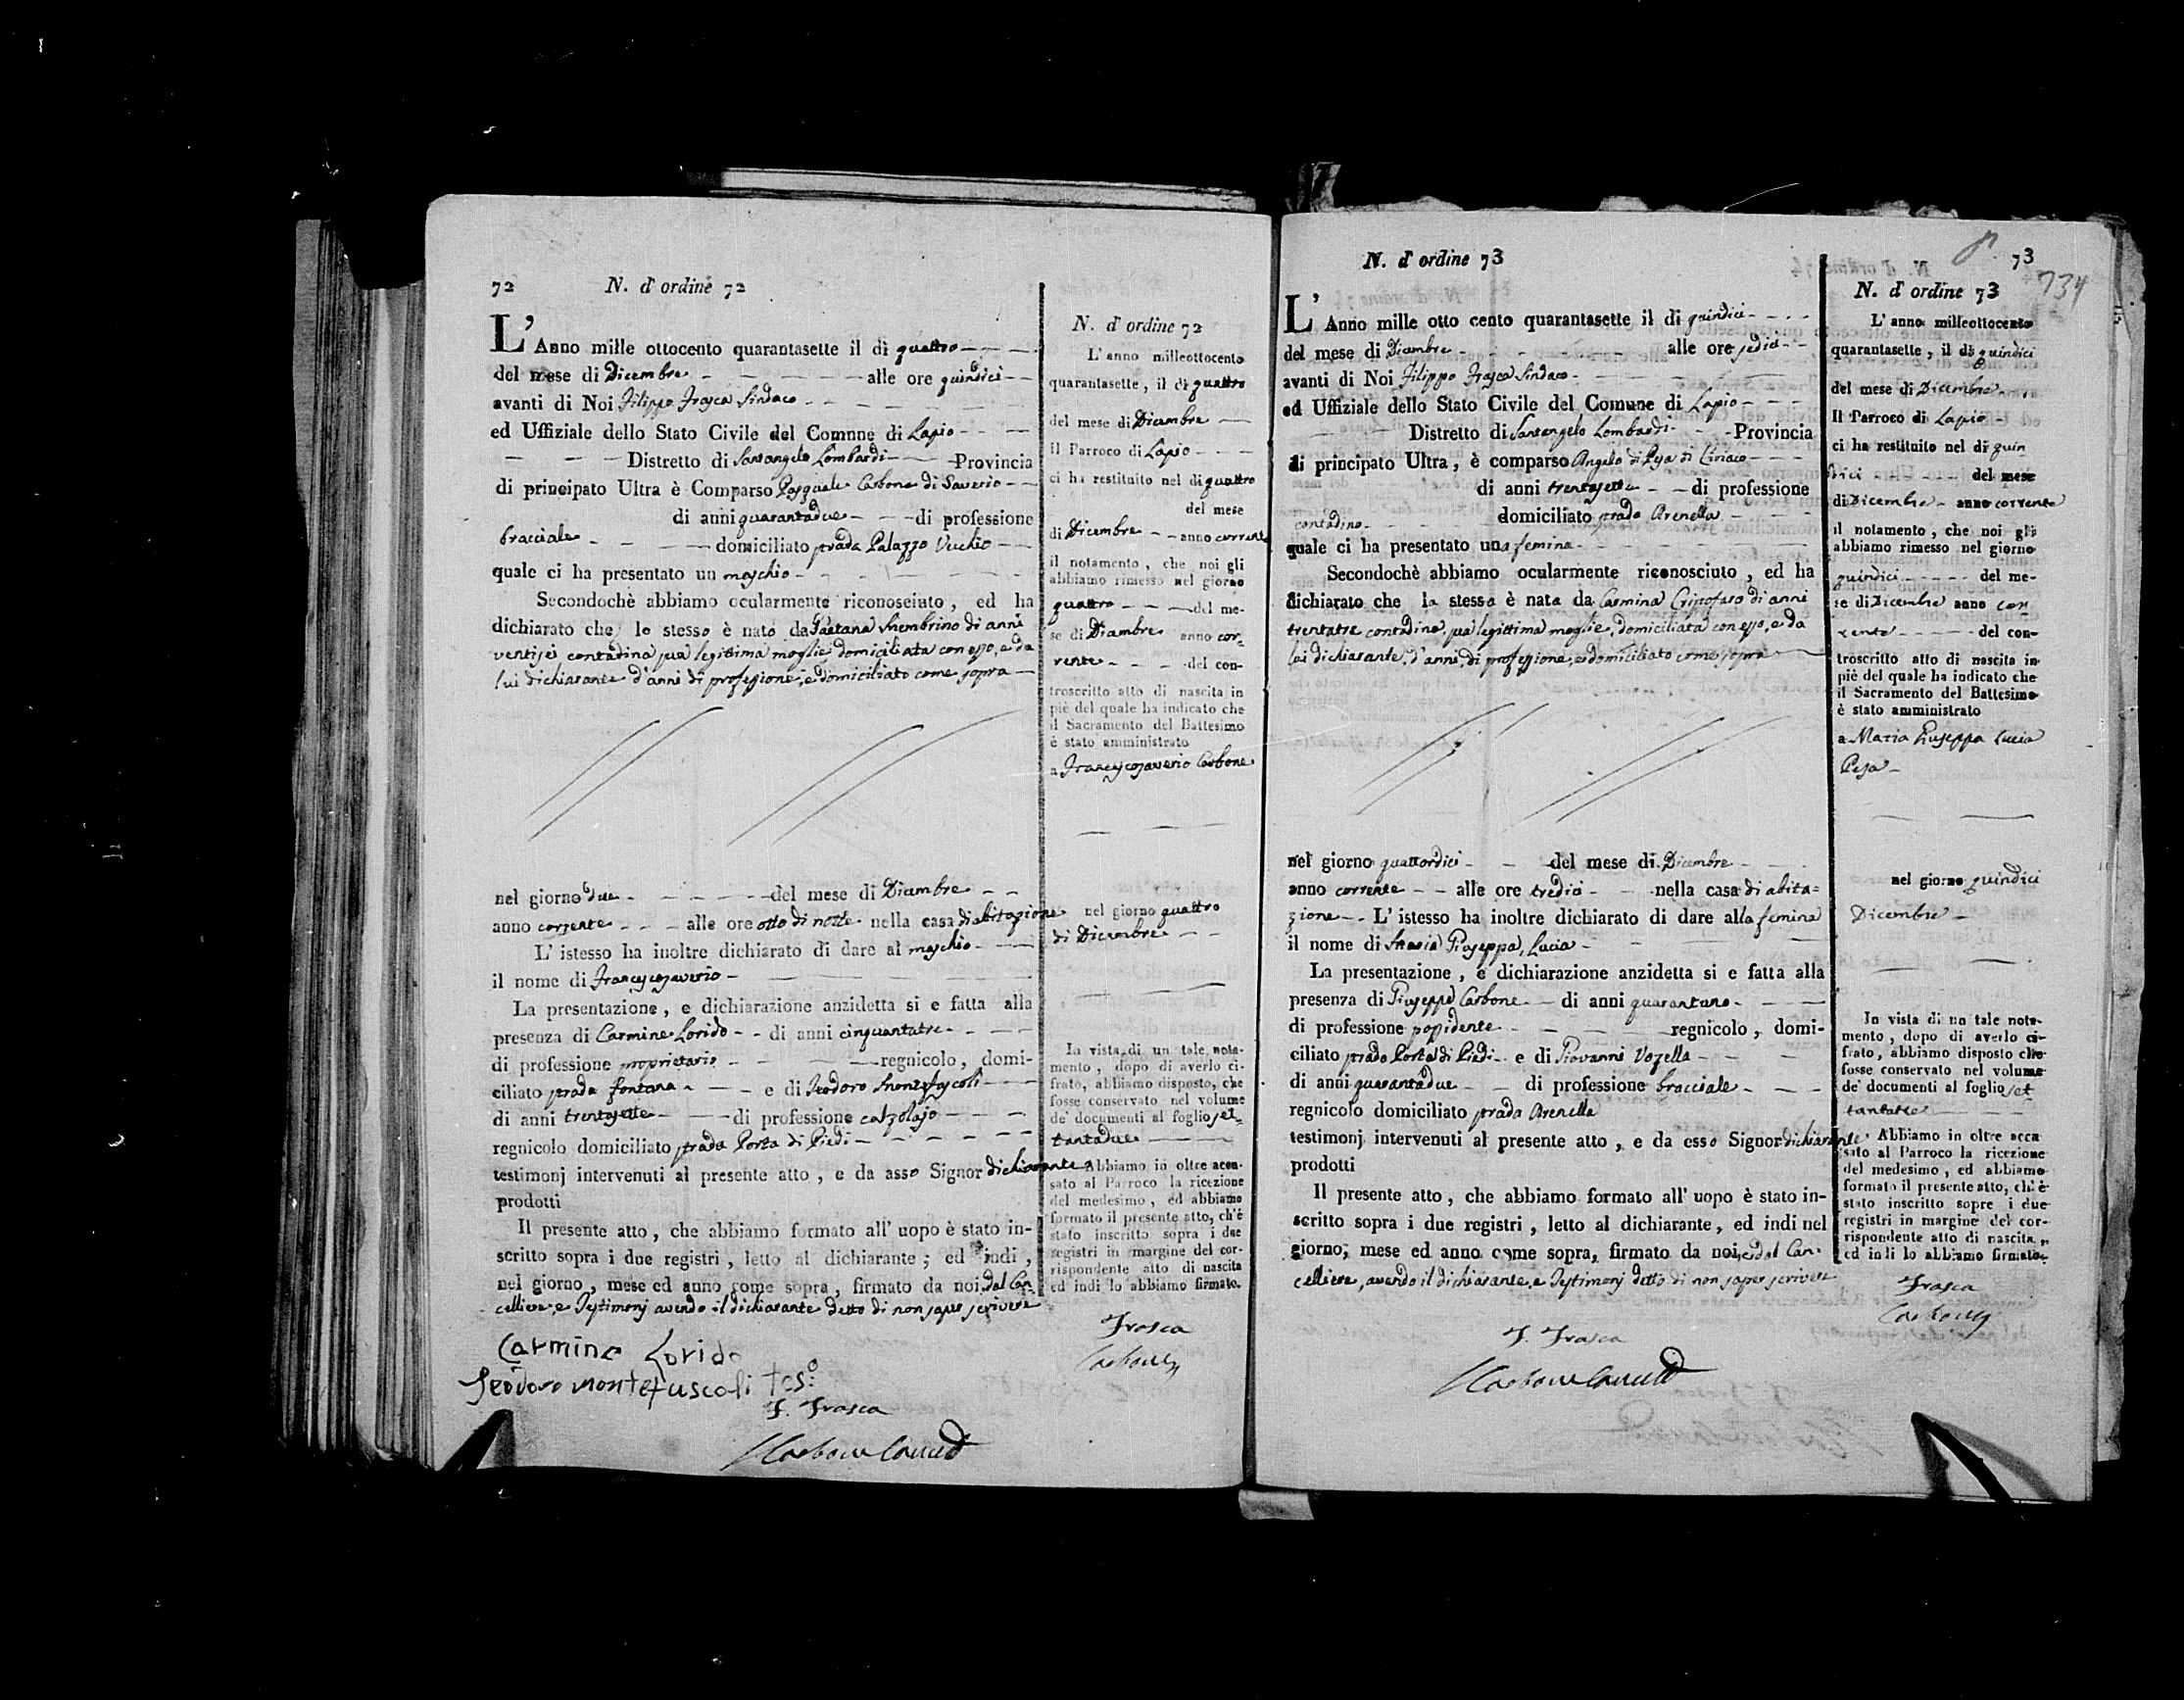 72 N. d' ordine 72
L' Anno mille ottocento quarantasette il dì quattro
del mese di Dicembre alle ore quindici
avanti di Noi Filippo Frasca Sindaco
ed Uffiziale dello Stato Civile del Comune di Lapio
Distretto di Santangelo Lombardi Provincia
di principato Ultra è Comparso Pasquale Carbone di Saverio
di anni quarantadue di professione
bracciale domiciliato strada Palazzo Vecchio
quale ci ha presentato un maschio
Secondochè abbiamo ocularmente riconosciuto, ed ha
dichiarato che lo stesso è nato da Gaetana
di anni
ventisei contadina sua legittima moglie domiciliata con esso, e da
lui dichiarante d'anni di professione, e domiciliato come sopra
nel giorno due del mese di Dicembre
anno corrente alle ore otto di notte nella casa di abitazione
L' istesso ha inoltre dichiarato di dare al maschio
il nome di Francescosaverio
La presentazione, e dichiarazione anzidetta si e fatta alla
presenza di Carmine Lorido di anni cinquantatre
di professione proprietario regnicolo, domi-
ciliato strada fontana e di Teodoro Montefuscoli
di anni trentasette di professione calzolajo
regnicolo domiciliato strada Porta di Piedi
testimonj intervenuti al presente atto, e da asso Signor dichiarante
prodotti
Il presente atto, che abbiamo formato all' uopo è stato in-
scritto sopra i due registri, letto al dichiarante; ed indi,
nel giorno, mese ed anno come sopra, firmato da noi dal Can-
celliere, e Testimonj avendo il dichiarante detto di non saper scrivere
Carmine Lorido
Teodoro Montefuscoli tes:o
F. Frasca
N. d' ordine 72
L' anno milleottocento
quarantasette, il di quattro
del mese di Dicembre
il Parroco di Lapio
ci ha restituito nel di quattro
del mese
di Dicembre anno corrente
il notamento, che noi gli
abbiamo rimesso nel giorno
quattro del me-
se di Dicembre anno cor-
rente del con-
troscritto atto di nascita in
piè del quale ha indicato che
il Sacramento del Battesimo
è stato amministrato
a Francescosaverio Carbone
nel giorno quattro
di Dicembre
In vista di un tale nota-
mento, dopo di averlo ci-
frato, abbiamo disposto, che
fosse conservato nel volume
de' documenti al foglio set-
tantadue
Abbiamo in oltre accu-
sato al Parroco la ricezione
del medesimo, ed abbiamo
formato il presente atto, ch'è
stato inscritto sopra i due
registri in margine del cor-
rispondente atto di nascita
ed indi lo abbiamo firmato.
Frasca
N. d' ordine 73
L' Anno mille otto cento quarantasette il di quindici
del mese di Dicembre alle ore sedici
avanti di Noi Filippo Frasca Sindaco
ed Uffiziale dello Stato Civile del Comune di Lapio
Distretto di Santangelo Lombardi Provincia
di principato Ultra, è comparso Angelo di Pesa di Ciriaco
di anni trentasette di professione
contadino domiciliato strada Arenella
quale ci ha presentato una femina
Secondochè abbiamo ocularmente riconosciuto, ed ha
dichiarato che la stessa è nata da Carmina Cristofaro di anni
trentatre contadina sua legittima moglie, domiciliata con esso, e da
lui dichiarante, d'anni, di professione, e domiciliato come sopra
nel giorno quattordici del mese di Dicembre
anno corrente alle ore tredici nella casa di abita=
zione L' istesso ha inoltre dichiarato di dare alla femina
il nome di Maria Giuseppa, Lucia
La presentazione, e dichiarazione anzidetta si e fatta alla
presenza di Giuseppe Carbone di anni quarantuno
di professione possidente regnicolo, domi-
ciliato strada Porta di Piedi e di Giovanni Vozella
di anni quarantadue di professione bracciale
regnicolo domiciliato strada Arenella
testimonj intervenuti al presente atto, e da esso Signor dichiarante
prodotti
Il presente atto, che abbiamo formato all' uopo è stato in-
scritto sopra i due registri, letto al dichiarante, ed indi nel
giorno, mese ed anno come sopra, firmato da noi, e dal Can-
celliere, avendo il dichiarante, e Testimonj detto di non saper scrivere
F. Frasca
73
734
N. d' ordine 73
L' anno milleottocento
quarantasette, il di quindici
del mese di Dicembre
Il Parroco di Lapio
ci ha restituito nel di quin
dici del mese
di Dicembre anno corrente
il notamento, che noi gli
abbiamo rimesso nel giorno
quindici del me-
se di Dicembre anno cor
rente del con-
troscritto atto di nascita in
piè del quale ha indicato che
il Sacramento del Battesimo
è stato amministrato
a Maria Giuseppa Lucia
Pesa
nel giorno quindici
Dicembre
In vista di un tale nota-
mento, dopo di averlo ci-
frato, abbiamo disposto che
fosse conservato nel volume
de' documenti al foglio set
tantatre
Abbiamo in oltre accu
sato al Parroco la ricezione
del medesimo, ed abbiamo
formato il presente atto, ch'è
stato inscritto sopre i due
registri in margine del cor-
rispondente atto di nascita,
ed indi lo abbiamo firmato.
Frasca